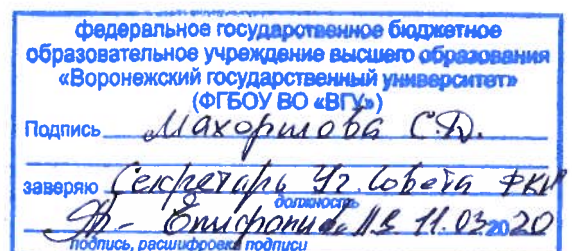 федеральное государственное бюджетное
образовательное учреждение высшего образования
«Воронежский государственный университет»
(ФГБОУ ВО «ВГУ»)
Подпись Махортова С.Д.
заверяю Секретарь Уч. Совета ФКН
должность
11.03 2020
подпись, расшифровка подписи